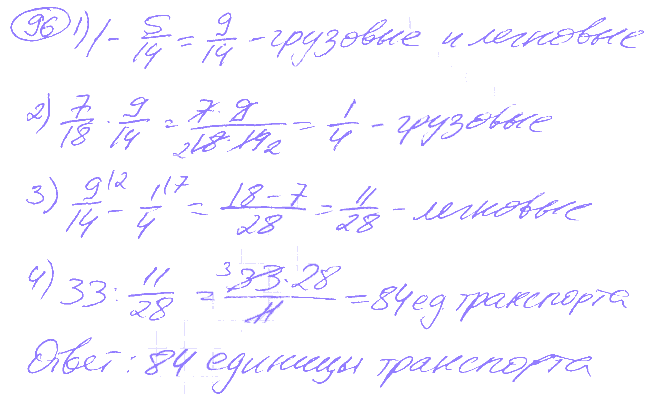 96 1) 1 - 5/14 = 9/14 - грузовые и легковые
2) 7/18 · 9/14 = 7·9/18·14 2 2 = 1/4 - грузовые
3) 9/14 |2 - 1/4 |7 = 18-7/28 = 11/28 - легковые
4) 33 : 11/28 = 3 33·28/11 = 84 ед транспорта
Ответ: 84 единицы транспорта